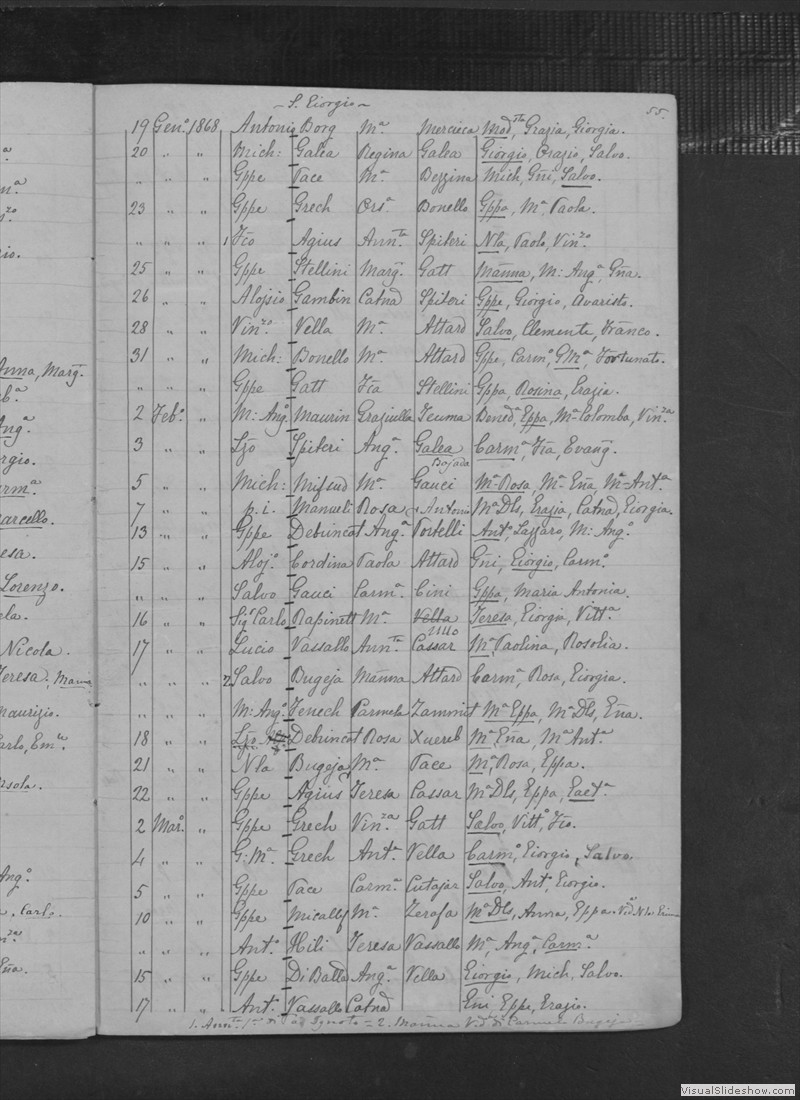 S. Eiorgio
55.
19 Genº 1868 Antonio Borg Mª Mercieca Modtta, Grazia, Giorgia.
20 " " Mich: Galea Regina Galea Giorgio, Orazio, Salvo.
" " " Gppe Pace Mª Bezzina Mich, Gñi, Salvo.
23 " " Gppe Grech Orsª Bonello Gppa, Mª Paola.
" " " 1 Fco Agius Annta Spiteri Nla, Paolo, Vinzo
25 " " Gppe Stellini Margª Gatt Mañna, M: Angª, Gña.
26 " " Alojsio Gambin Catnã Spiteri Gppe, Giorgio, Avaristo.
28 " " Vinzo Vella Mª Attard Salvo, Clemente, Franco.
31 " " Mich: Bonello Mª Attard Gppe, Carmº, GMª, Fortunato.
" " " Gppe Gatt Fca Stellini Gppa, Rosina, Erazia.
2 Febº " M: Angº Maurin Graziella Teuma Bened, Eppa, Mª Colomba, Vinza
3 " " Lzo Spiteri Angª Galea Carmª, Fca, Evang.
Bojada
5 " " Mich: Mifsud Mª Gauci Mª Rosa, Mª Eña, Mª Antª
7 " " p.i. Manueli Rosa Antonio Mª Dls, Erazia, Catnã, Eiorgia.
13 " " Gppe Debrincat Angª Portelli Antº Lazzaro, M: Angº
15 " " Alojº Cordina Paola Attard Gni, Eiorgio, Carmº
" " " Salvo Gauci Carmª Cini Gppa, Maria Antonia.
16 " " Sigr Carlo Rapinett Mª Vella Teresa, Eiorgia, Vittª
17 " " Lucio Vassallo Annta Cassar Mª Paolina, Rosolia.
" " " 2 Salvo Bugeja Mañna Attard Carmª, Rosa, Eiorgia.
" " " M: Angº Fenech Carmela Zammit Mª Eppa, Mª Dls, Eña.
18 " " Lzo Debrincat Rosa Xuereb Mª Eña, Mª Antª
21 " " Nla Bugeja Mª Pace Mª Rosa, Eppa.
22 " " Gppe Agius Teresa Cassar Mª Dls, Eppa, Eaetª
2 Marº " Gppe Grech Vinza Gatt Salvo, Vittº, Fco.
4 " " G: Mª Grech Antª Vella Carmº, Eiorgio, Salvo.
5 " " Gppe Pace Carmª Cutajar Salvo, Antº, Eiorgio.
10 " " Gppe Micallef Mª Zerafa Mª Dls, Anna, Eppa.
" " " Antº Hili Teresa Vassallo Mª, Angª, Carmª
15 " " Gppe Di Batta Angª Vella Eiorgio, Mich, Salvo.
17 " " Antº Vassallo Catnã Eni, Eppe, Erazio.
1. Annta di Pad Ignoto = 2. Mañna Vid di Carmelo Bugeja
Anna, Marg.
Angª
orgio.
armª
arcello.
esa.
Lorenzo.
ela.
Nicola.
Teresa, Marina
Maurizio.
Carlo, Emª
rsola.
Angº
Carlo.
Eña.
VisualSlideshow.com